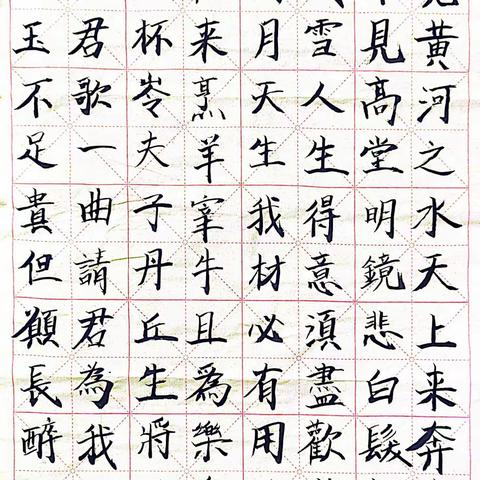 黃河之水天上来奔
見高堂明鏡悲白髮
雪人生得意須盡歡
月天生我材必有用
来烹羊宰牛且爲樂
杯岑夫子丹丘生將
君歌一曲請君為我
玉不足貴但願長醉